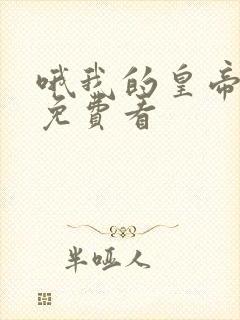 哦我的皇帝
免費看
半哑人